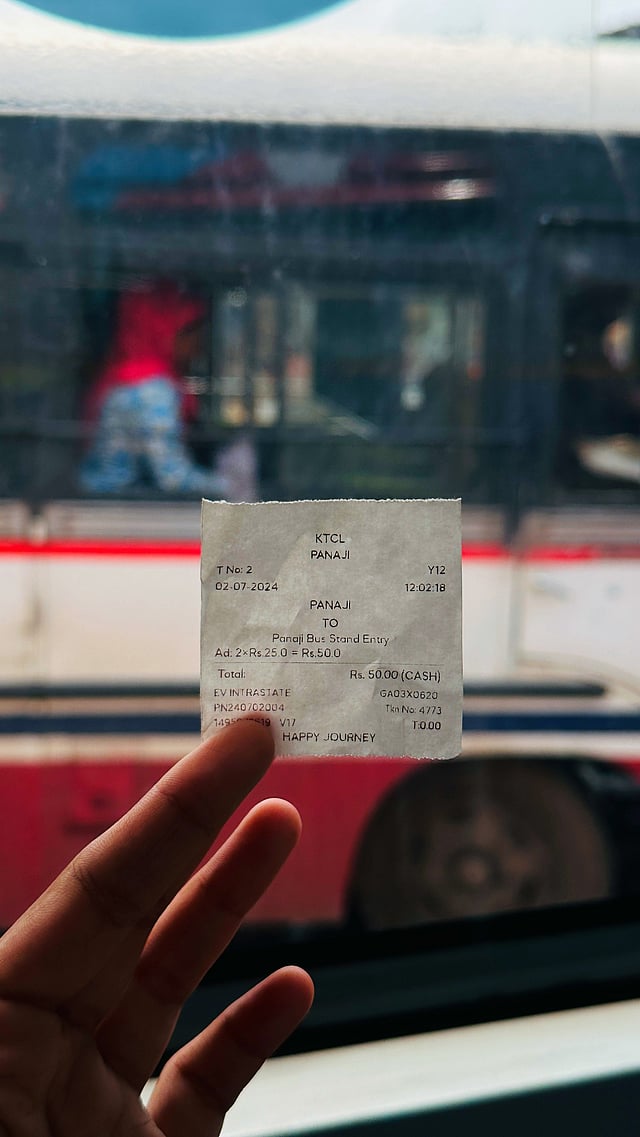 KTCL
PANAJI
T No: 2 Y12
02-07-2024 12:02:18
PANAJI
TO
Panaji Bus Stand Entry
Ad: 2×Rs.25.0 = Rs.50.0
Total: Rs. 50.00 (CASH)
EV INTRASTATE GA03X0620
PN240702004 Tkn No: 4773
V17 T:0.00
HAPPY JOURNEY